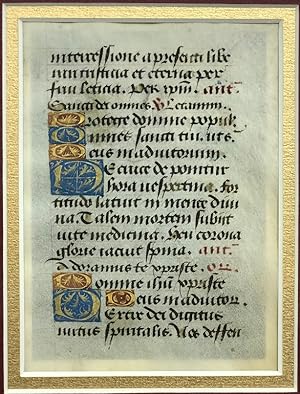 intercessione a presenti libe
rari tristicia et eterna per
frui leticia. Per xpm̅. ant̅.
Sancti dei omnes. V̅. Letamini.
Protege domine popul̅.
Omnes sancti tui. vt s.
Deus in adiutorium.
De cruce deponitur
hora vespertina. For
titudo latuit in mente diui
na. Talem mortem subiit
vite medicina. Heu corona
glorie iacuit spina. ant.
Adoramus te xpriste. Or̅.
Domine ihu̅ xpriste
Deus in adiutor.
Extre dei digitus
virtus spiritalis. Nos deffen